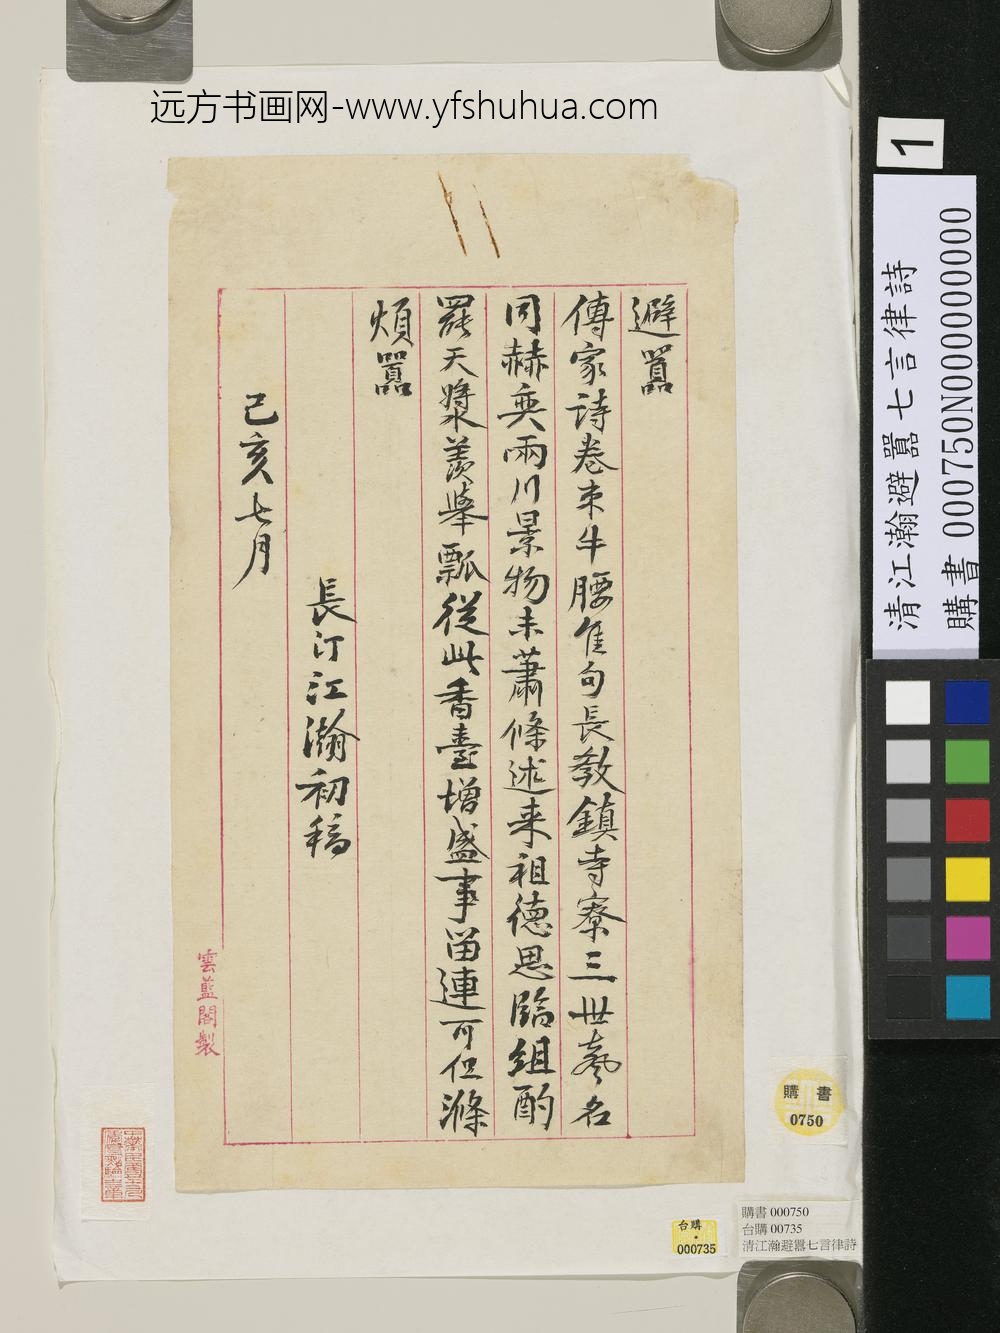 远方书画网-www.yfshuhua.com
避囂
傳家詩卷束牛腰隹句長教鎮寺寮三世藝名
同赫奕兩川景物未蕭條述来祖德思臨組酌
罷天漿羨舉瓢從此香臺增盛事留連可但滌
煩囂
長汀江瀚初稿
己亥七月
雲藍閣製
1
清江瀚避囂七言律詩
購書 000750N000000000
購書
0750
台購
000735
購書 000750
台購 00735
清江瀚避囂七言律詩